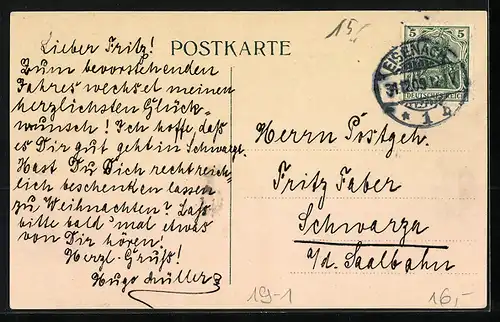 15,-
Lieber Fritz!
Zum bevorstehenden
Jahreswechsel meinen
herzlichsten Glück-
wunsch! Ich hoffe, daß
es Dir gut geht in
Hast Du Dich recht reich-
lich beschenken lassen
zu Weihnachten? Laß
bitte bald mal etwas
von Dir hören.
Herzl. Gruß!
Hugo Müller
POSTKARTE
5 5
DEUTSCHES REICH
EISENACH
31.12.09
* 1 b
Herrn Postgeh.
Fritz Faber
Schwarza
a/d. Saalbahn
19-1
16,-